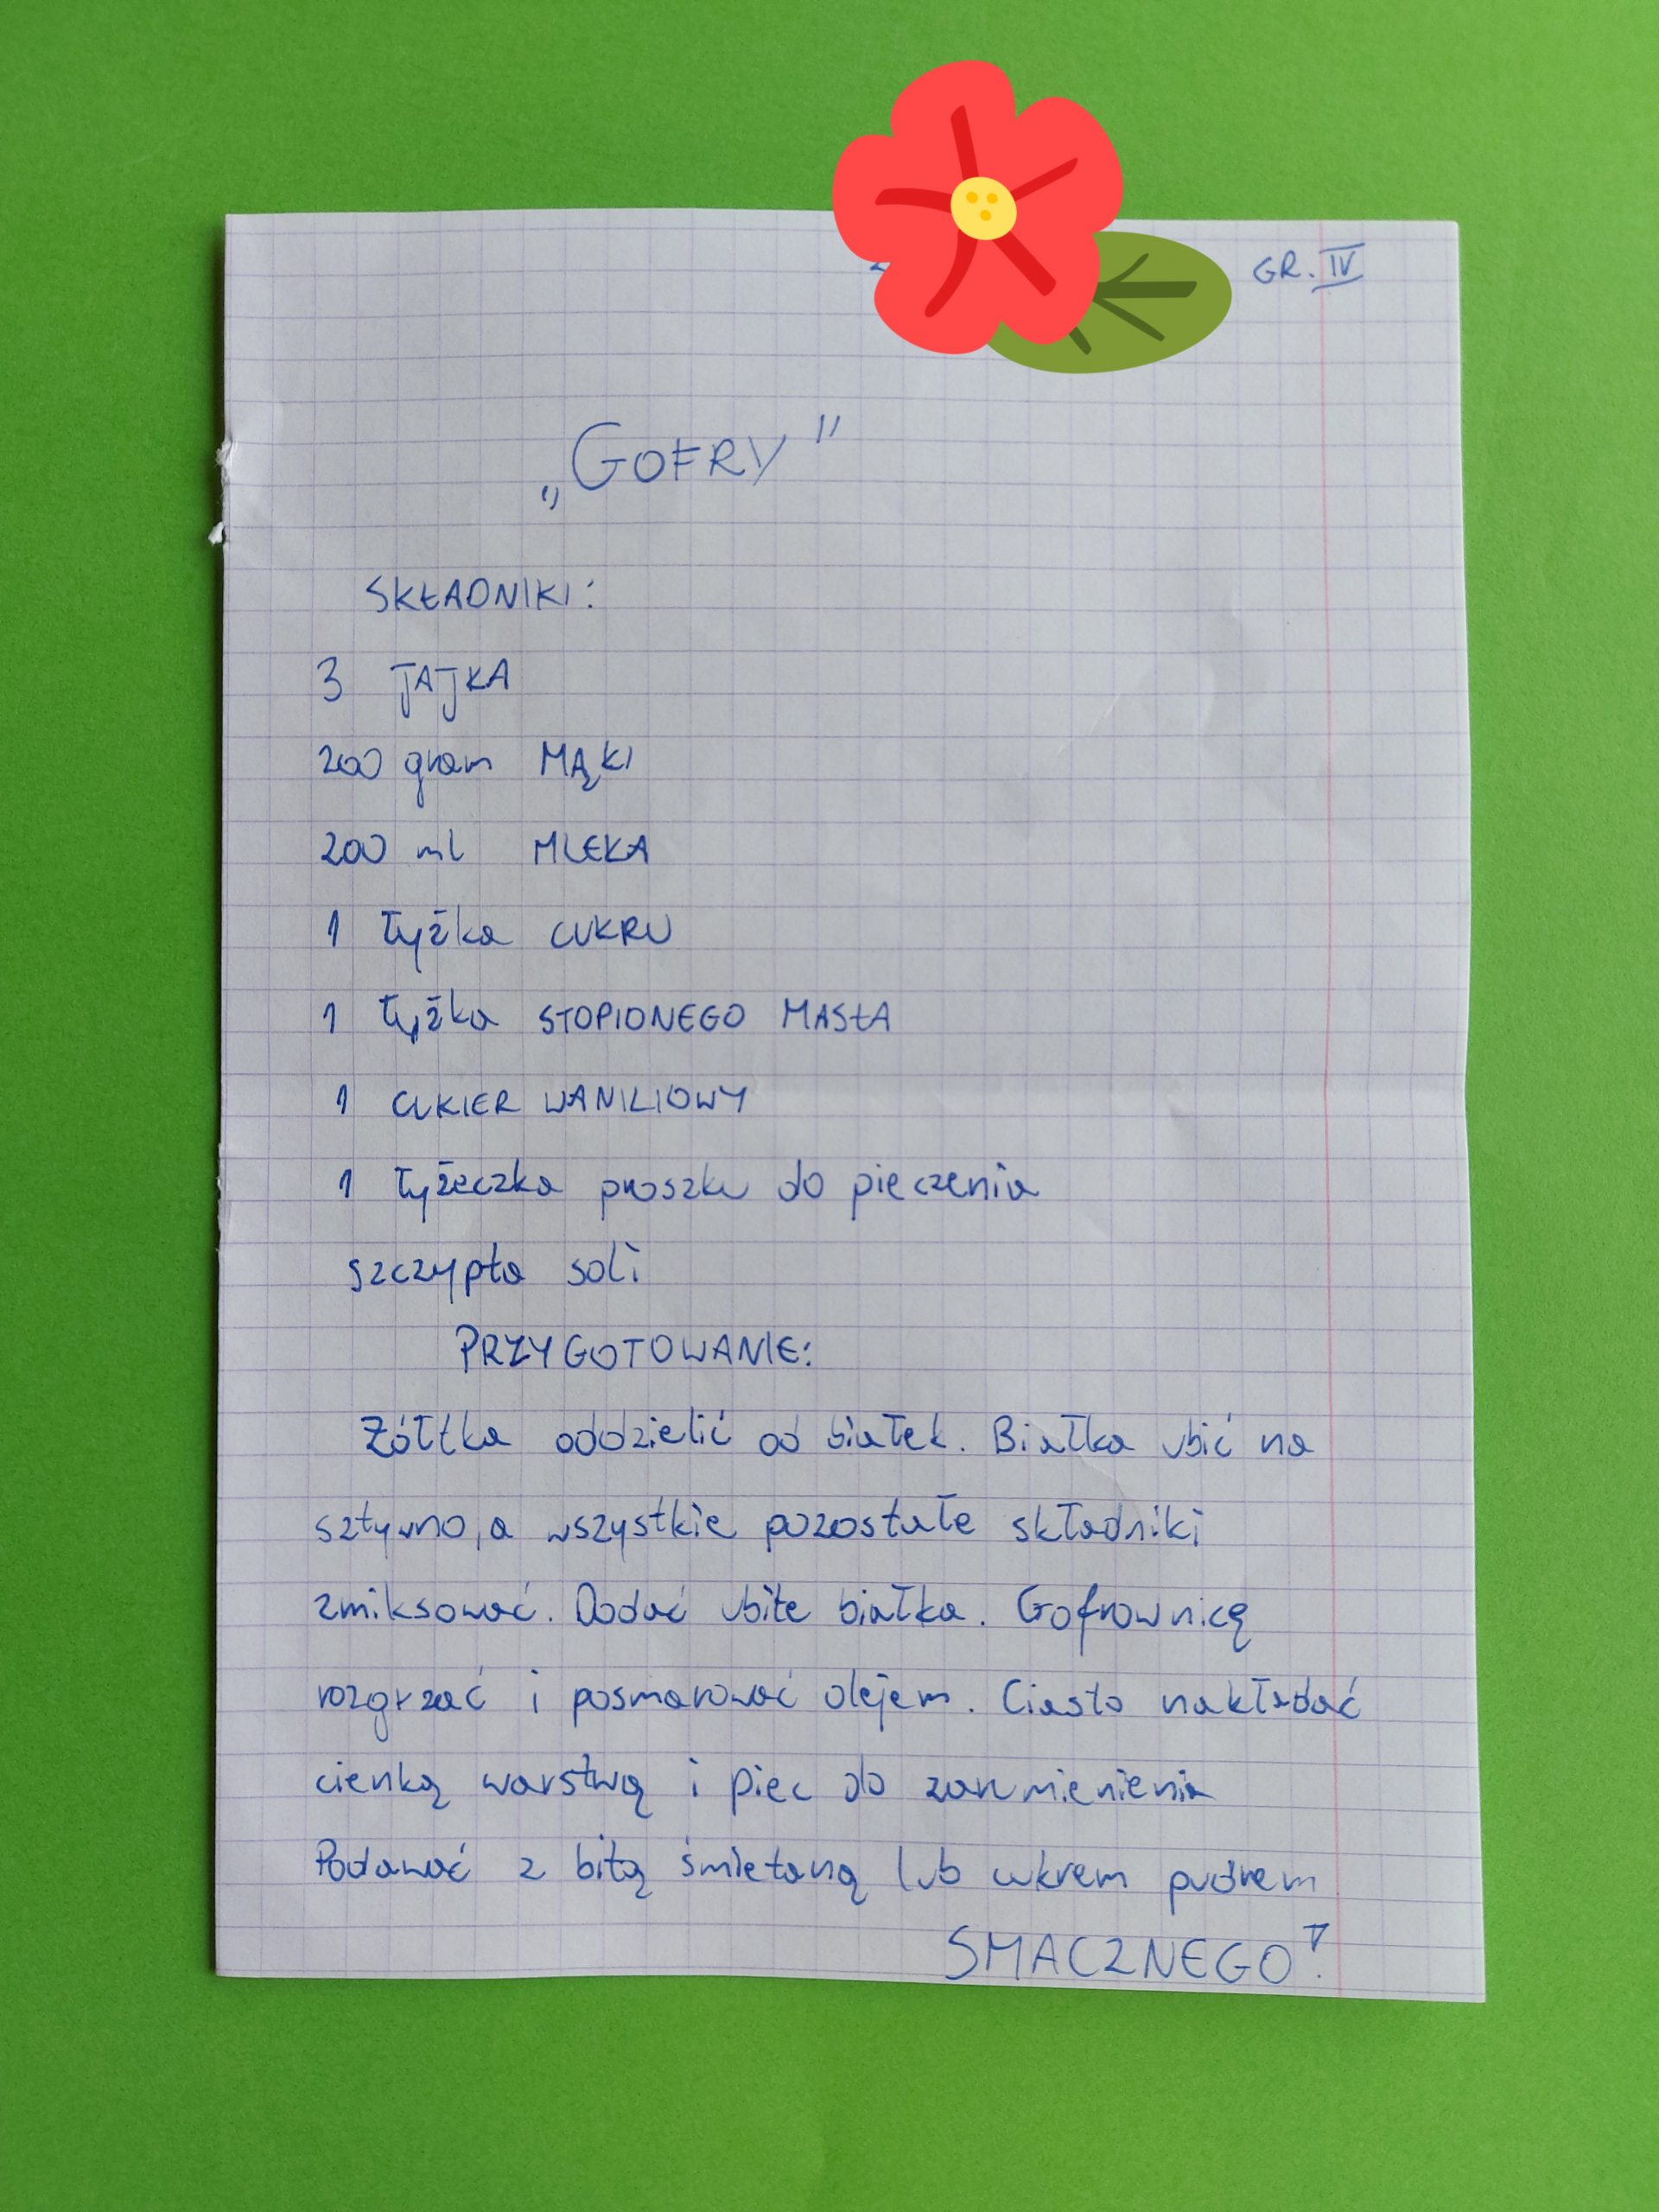 GR. IV
„GOFRY"
SKŁADNIKI:
3 JAJKA
200 gram MĄKI
200 ml MLEKA
1 łyżka CUKRU
1 łyżka STOPIONEGO MASŁA
1 CUKIER WANILIOWY
1 łyżeczka proszku do pieczenia
szczypta soli
PRZYGOTOWANIE:
Żółtka oddzielić od białek. Białka ubić na
sztywno, a wszystkie pozostałe składniki
zmiksować. Dodać ubite białka. Gofrownicę
rozgrzać i posmarować olejem. Ciasto nakładać
cienką warstwą i piec do zarumienienia
Podawać z bitą śmietaną lub cukrem pudrem
SMACZNEGO!